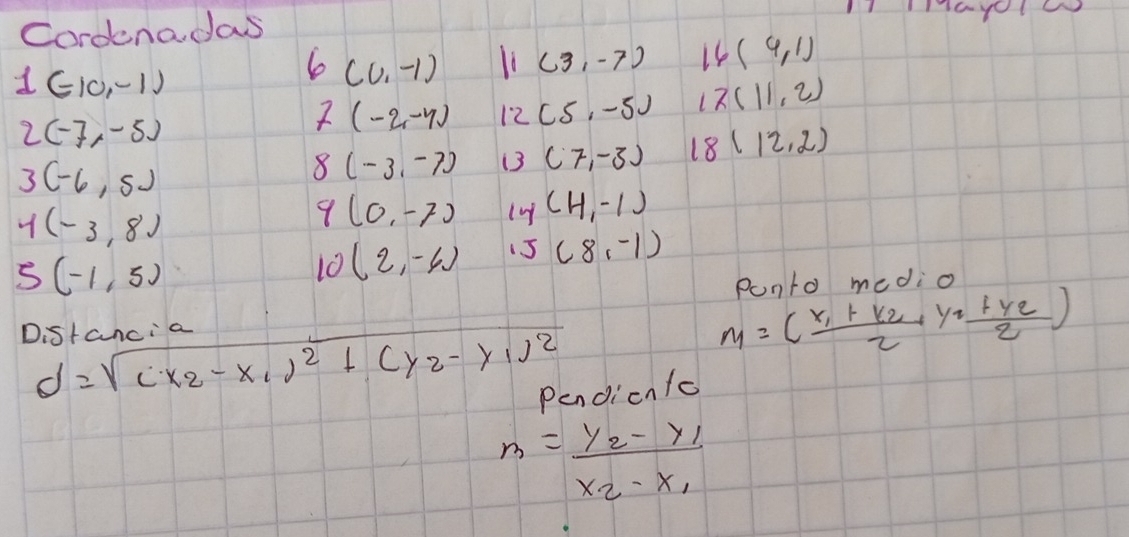 Cordenadas
1 (-10,-1)
2 (-7,-5)
3 (-6, 5)
4 (-3, 8)
5 (-1, 5)
6 (0,-1)
7 (-2,-4)
8 (-3,-7)
9 (0,-7)
10 (2,-6)
11 (3,-7)
12 (5,-5)
13 (7,-3)
14 (4,-1)
15 (8,-1)
16 (9,1)
17 (11,2)
18 (12,2)
Distancia
d=√(x2-x1)2 + (y2-y1)2
Punto medio
m = (x1 + x2/2, y2 + y2/2)
Pendiente
m = y2 - y1 / x2 - x1